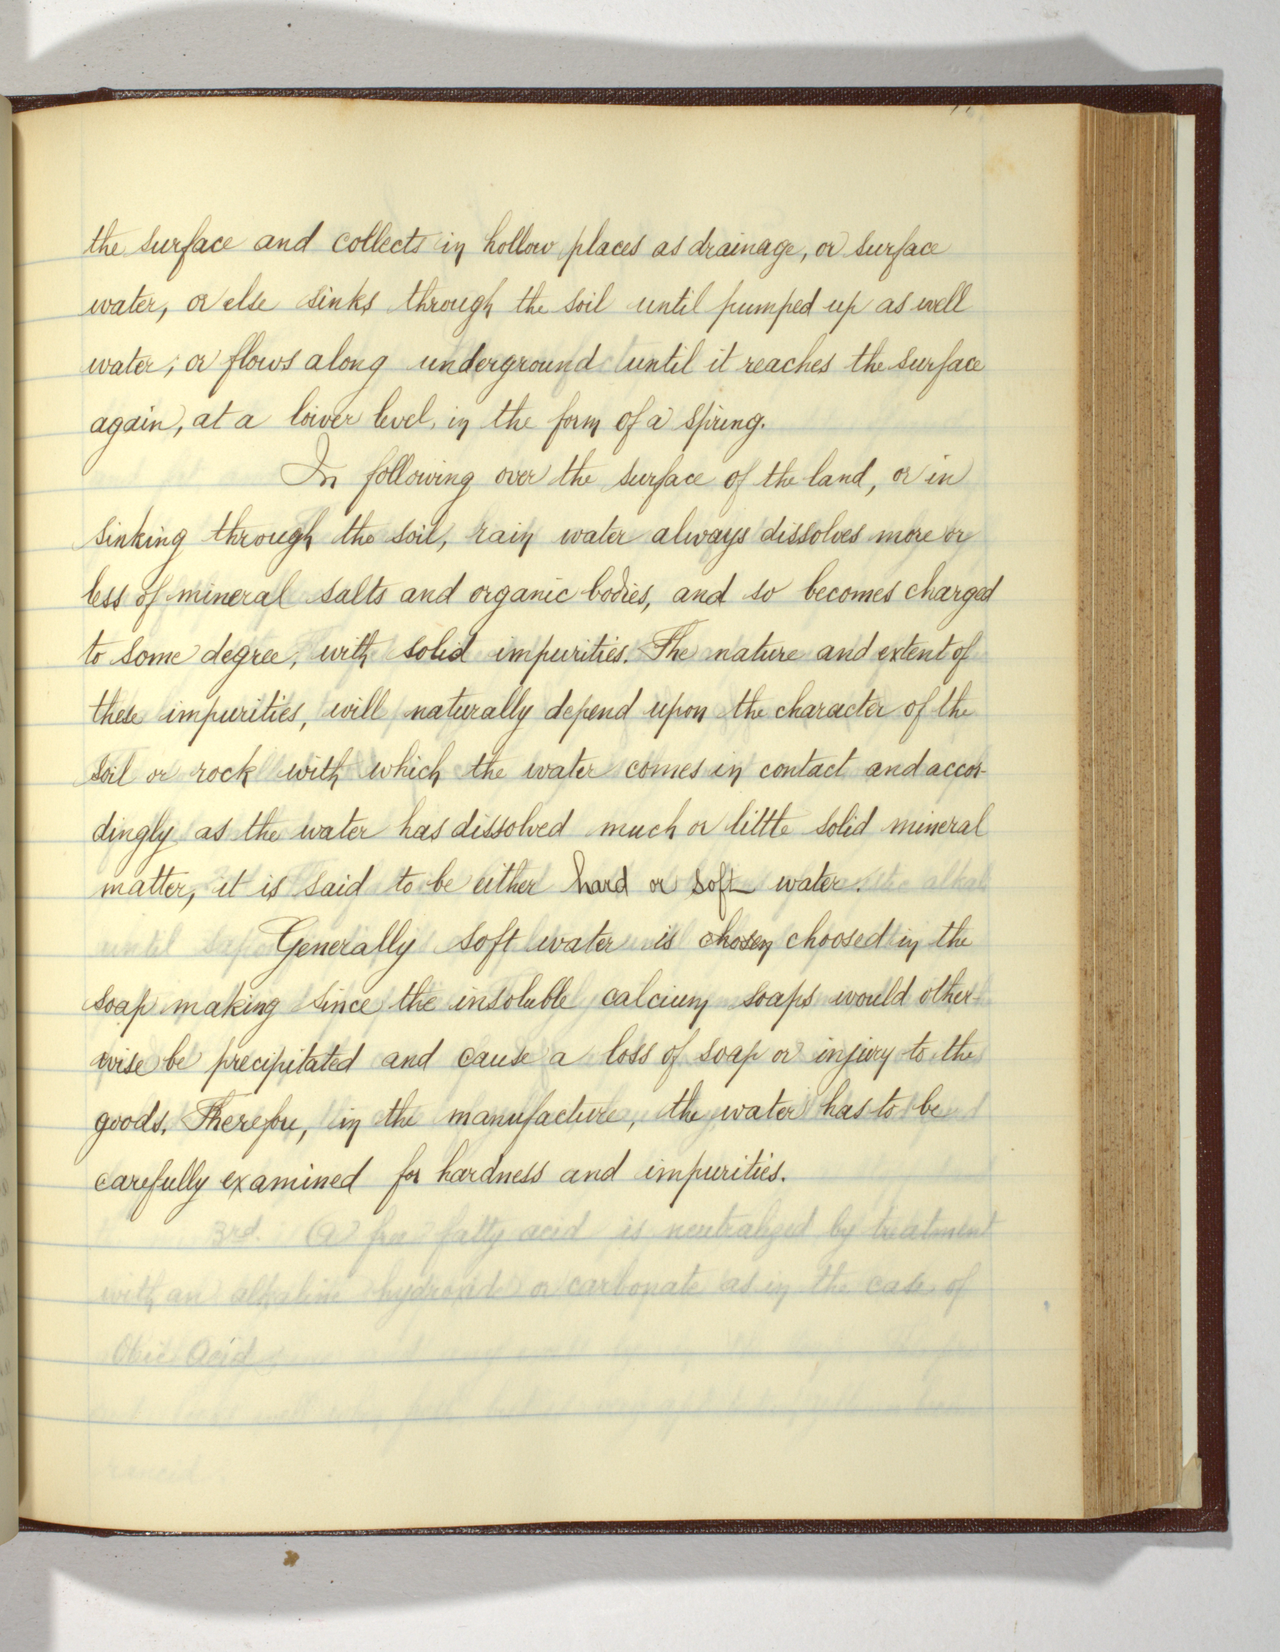 the surface and collects in hollow places as drainage, or surface
water, or else sinks through the soil until pumped up as well
water; or flows along underground until it reaches the surface
again, at a lower level, in the form of a spring.
In following over the surface of the land, or in
sinking through the soil, rain water always dissolves more or
less of mineral salts and organic bodies, and so becomes charged
to some degree, with solid impurities. The nature and extent of
these impurities, will naturally depend upon the character of the
soil or rock with which the water comes in contact and accor-
dingly as the water has dissolved much or little solid mineral
matter, it is said to be either hard or soft water.
Generally soft water is chosen choosed in the
soap making since the insoluble calcium soaps would other-
wise be precipitated and cause a loss of soap or injury to the
goods. Therefore, in the manufacture, the water has to be
carefully examined for hardness and impurities.
3rd. A free fatty acid is neutralized by treatment
with an alkaline hydroxide or carbonate as in the case of
Oleic Acid
rancid.